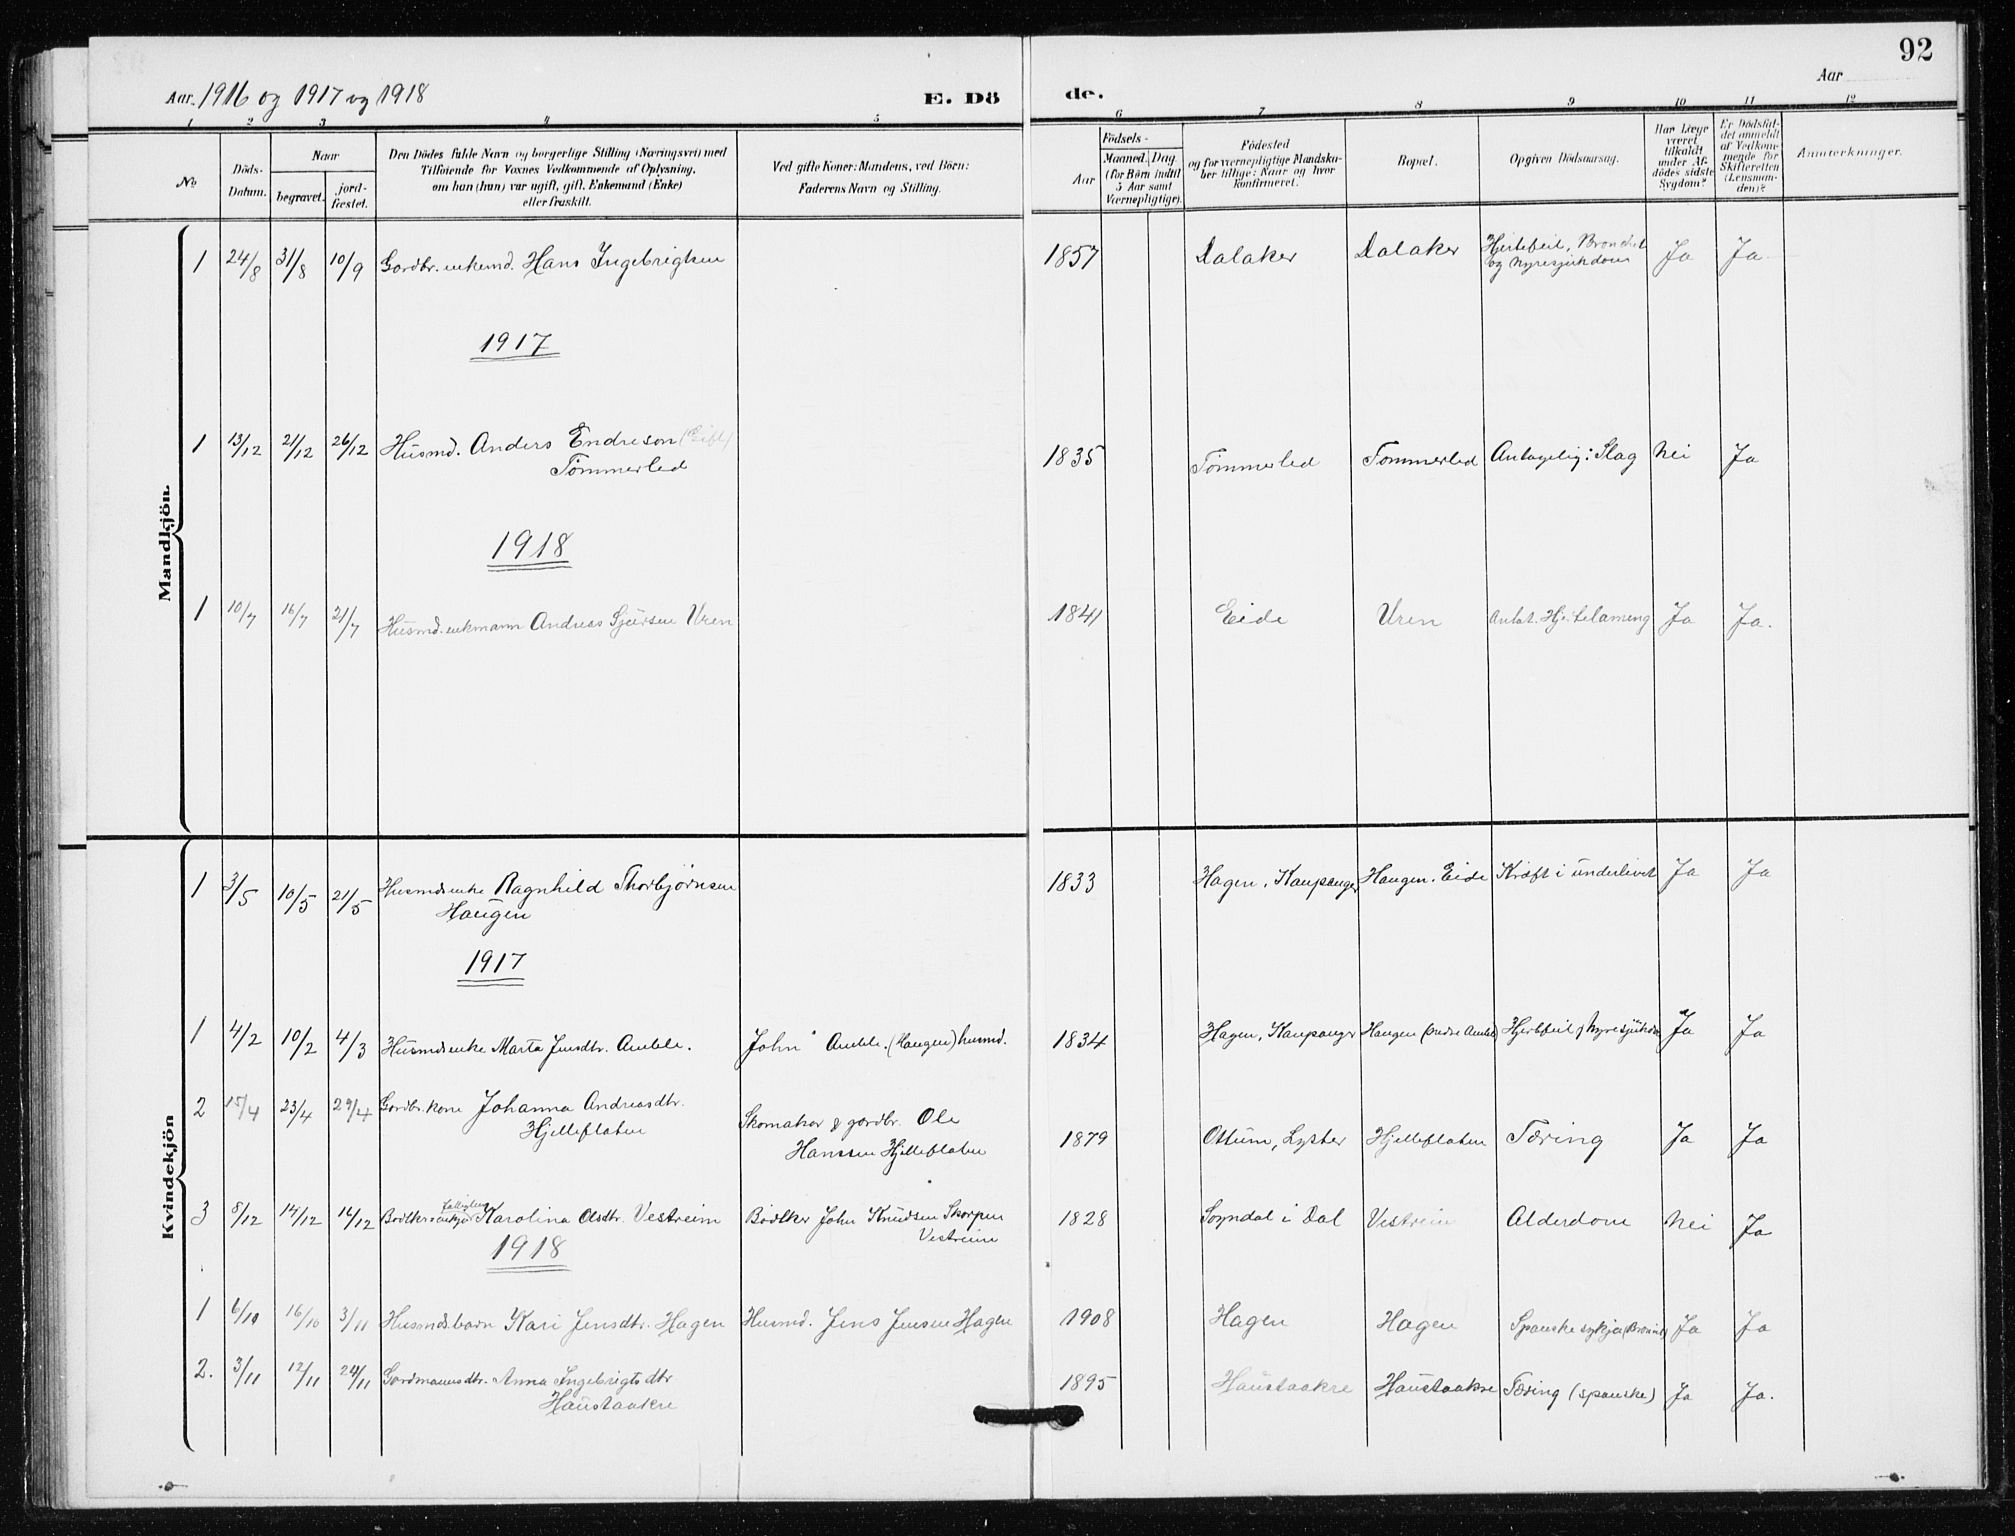 92
Aar. 1916 og 1917 og 1918
E. Dö
de.
Aar
1 2 3 4 5 6 7 8 9 10 11 12
No
Döds-
Datum.
Naar
begravet.
jord-
fæstet.
Den Dödes fulde Navn og borgerlige Stilling (Næringsvei) med
Tilföiende for Voxnes Vedkommende af Oplysning,
om han (hun) var ugift, gift, Enkemand (Enke)
eller fraskilt.
Ved gifte Koner: Mandens, ved Börn:
Faderens Navn og Stilling.
Födsels-
Aar
Maaned. Dag.
(for Börn indtil
5 Aar samt
Værnepligtige).
Födested
og for værnepligtige Mandska-
ber tillige: Naar og hvor
konfirmeret.
Bopæl.
Opgiven Dödsaarsag.
Har Læge
været
tilkaldt
under Af-
dödes sidste
Sygdom?
Er Dödsfal-
det anmeldt
af Vedkom-
mende for
Skifteretten
(Lensman-
den)?
Anmærkninger.
Mandkjön.
1 24/8 31/8 10/9 Gardbr. enkemd. Hans Ingebrigtsen 1857 Dalaker Dalaker Hjertefeil, Bronchit Ja Ja
og Nyresjukdom
1917
1 13/12 21/12 26/12 Husmd. Anders Endreson (Gift) 1835 Tömmerled Tommerled Antagelig: Slag Nei Ja
Tömmerled
1918
1 10/7 16/7 21/7 Husmd. enkmann Andreas Sjursen Uren 1841 Eide Uren Antat. Hjertelameng Ja Ja.
Kvindekjön
1 3/5 10/5 21/5 Husmdsenke Ragnhild Thorbjörnsen 1833 Hagen, Kaupanger Haugen, Eide Kræft i underlivet Ja Ja
Haugen
1917
1 4/2 10/2 4/3 Husmdsenke Marta Jensdtr. Amble. John Amble. (Haugen) husmd. 1834 Hagen, Kaupanger Haugen (Indre Amble) Hjertefeil Nyresjukdom Ja Ja
2 15/4 23/4 29/4 Gardbr. kone Johanna Andreasdtr.
Hjelleflaten
Skomakar & gardbr. Ole
Hanssen Hjelleflaten
1879 Ottum, Lyster Hjelleflaten Tæring Ja Ja
3 8/12 14/12 16/12 Karolina Olsdtr. Vestreim Bödker John Knudsen Skorpen
Vestreim
1828 Sogndal i Dal Vestreim Alderdom Nei Ja
1918
1 6/10 16/10 3/11 Husmdsbarn Kari Jensdtr. Hagen Husmd. Jens Jensen Hagen 1908 Hagen Hagen Spanske sykja Ja Ja
2. 3/11 12/11 24/11 Gardmannsdtr. Anna Ingebrigtsdtr 1895 Haustaakre Haustaakre Tæring (spanske) Ja Ja.
Haustaakre